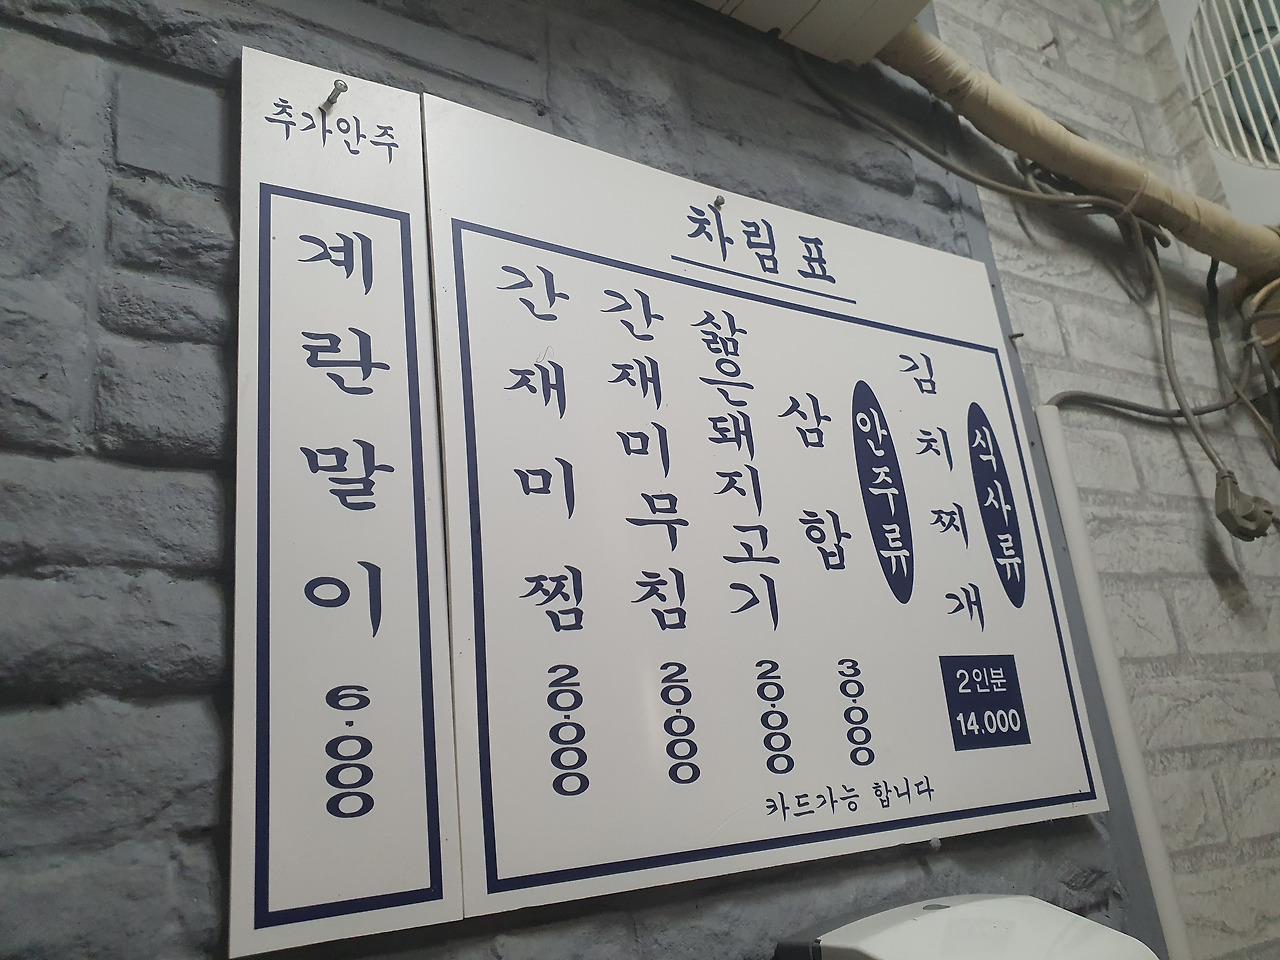 추가안주
계란말이 6.000
차림표
식사류
김치찌개 2인분 14.000
안주류
삼합 30.000
삶은돼지고기 20.000
간재미무침 20.000
간재미찜 20.000
카드가능 합니다